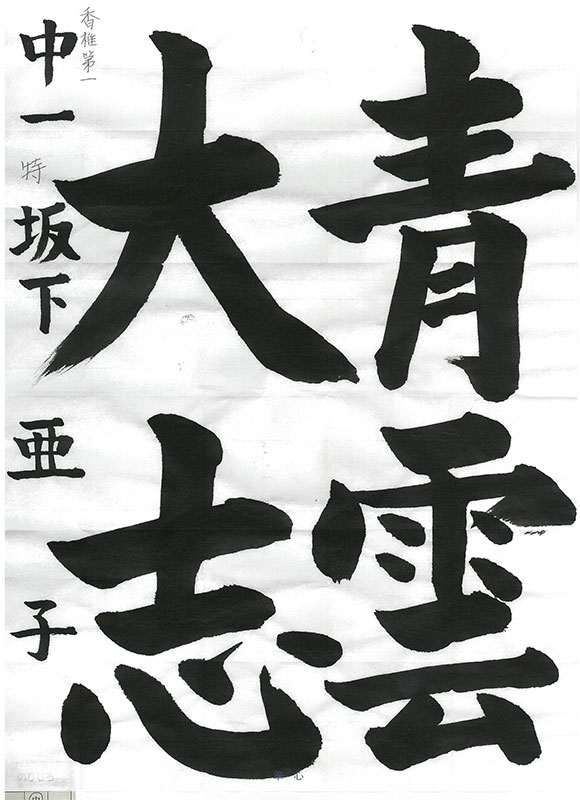 青雲
大志
香椎第一
中一 特 坂下亜子